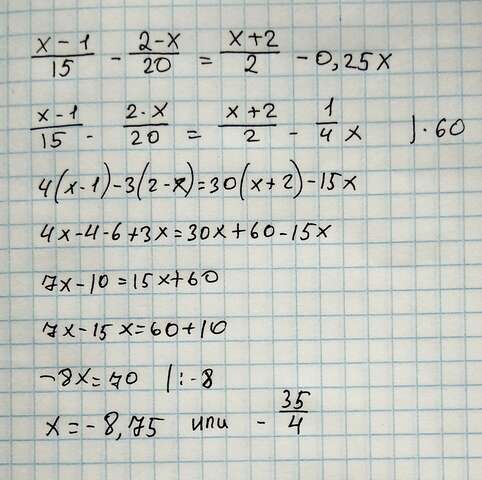 (x-1)/15 - (2-x)/20 = (x+2)/2 - 0,25x
(x-1)/15 - (2-x)/20 = (x+2)/2 - 1/4 x |·60
4(x-1)-3(2-x)=30(x+2)-15x
4x-4-6+3x=30x+60-15x
7x-10=15x+60
7x-15x=60+10
-8x=70 |:-8
x=-8,75 или -35/4